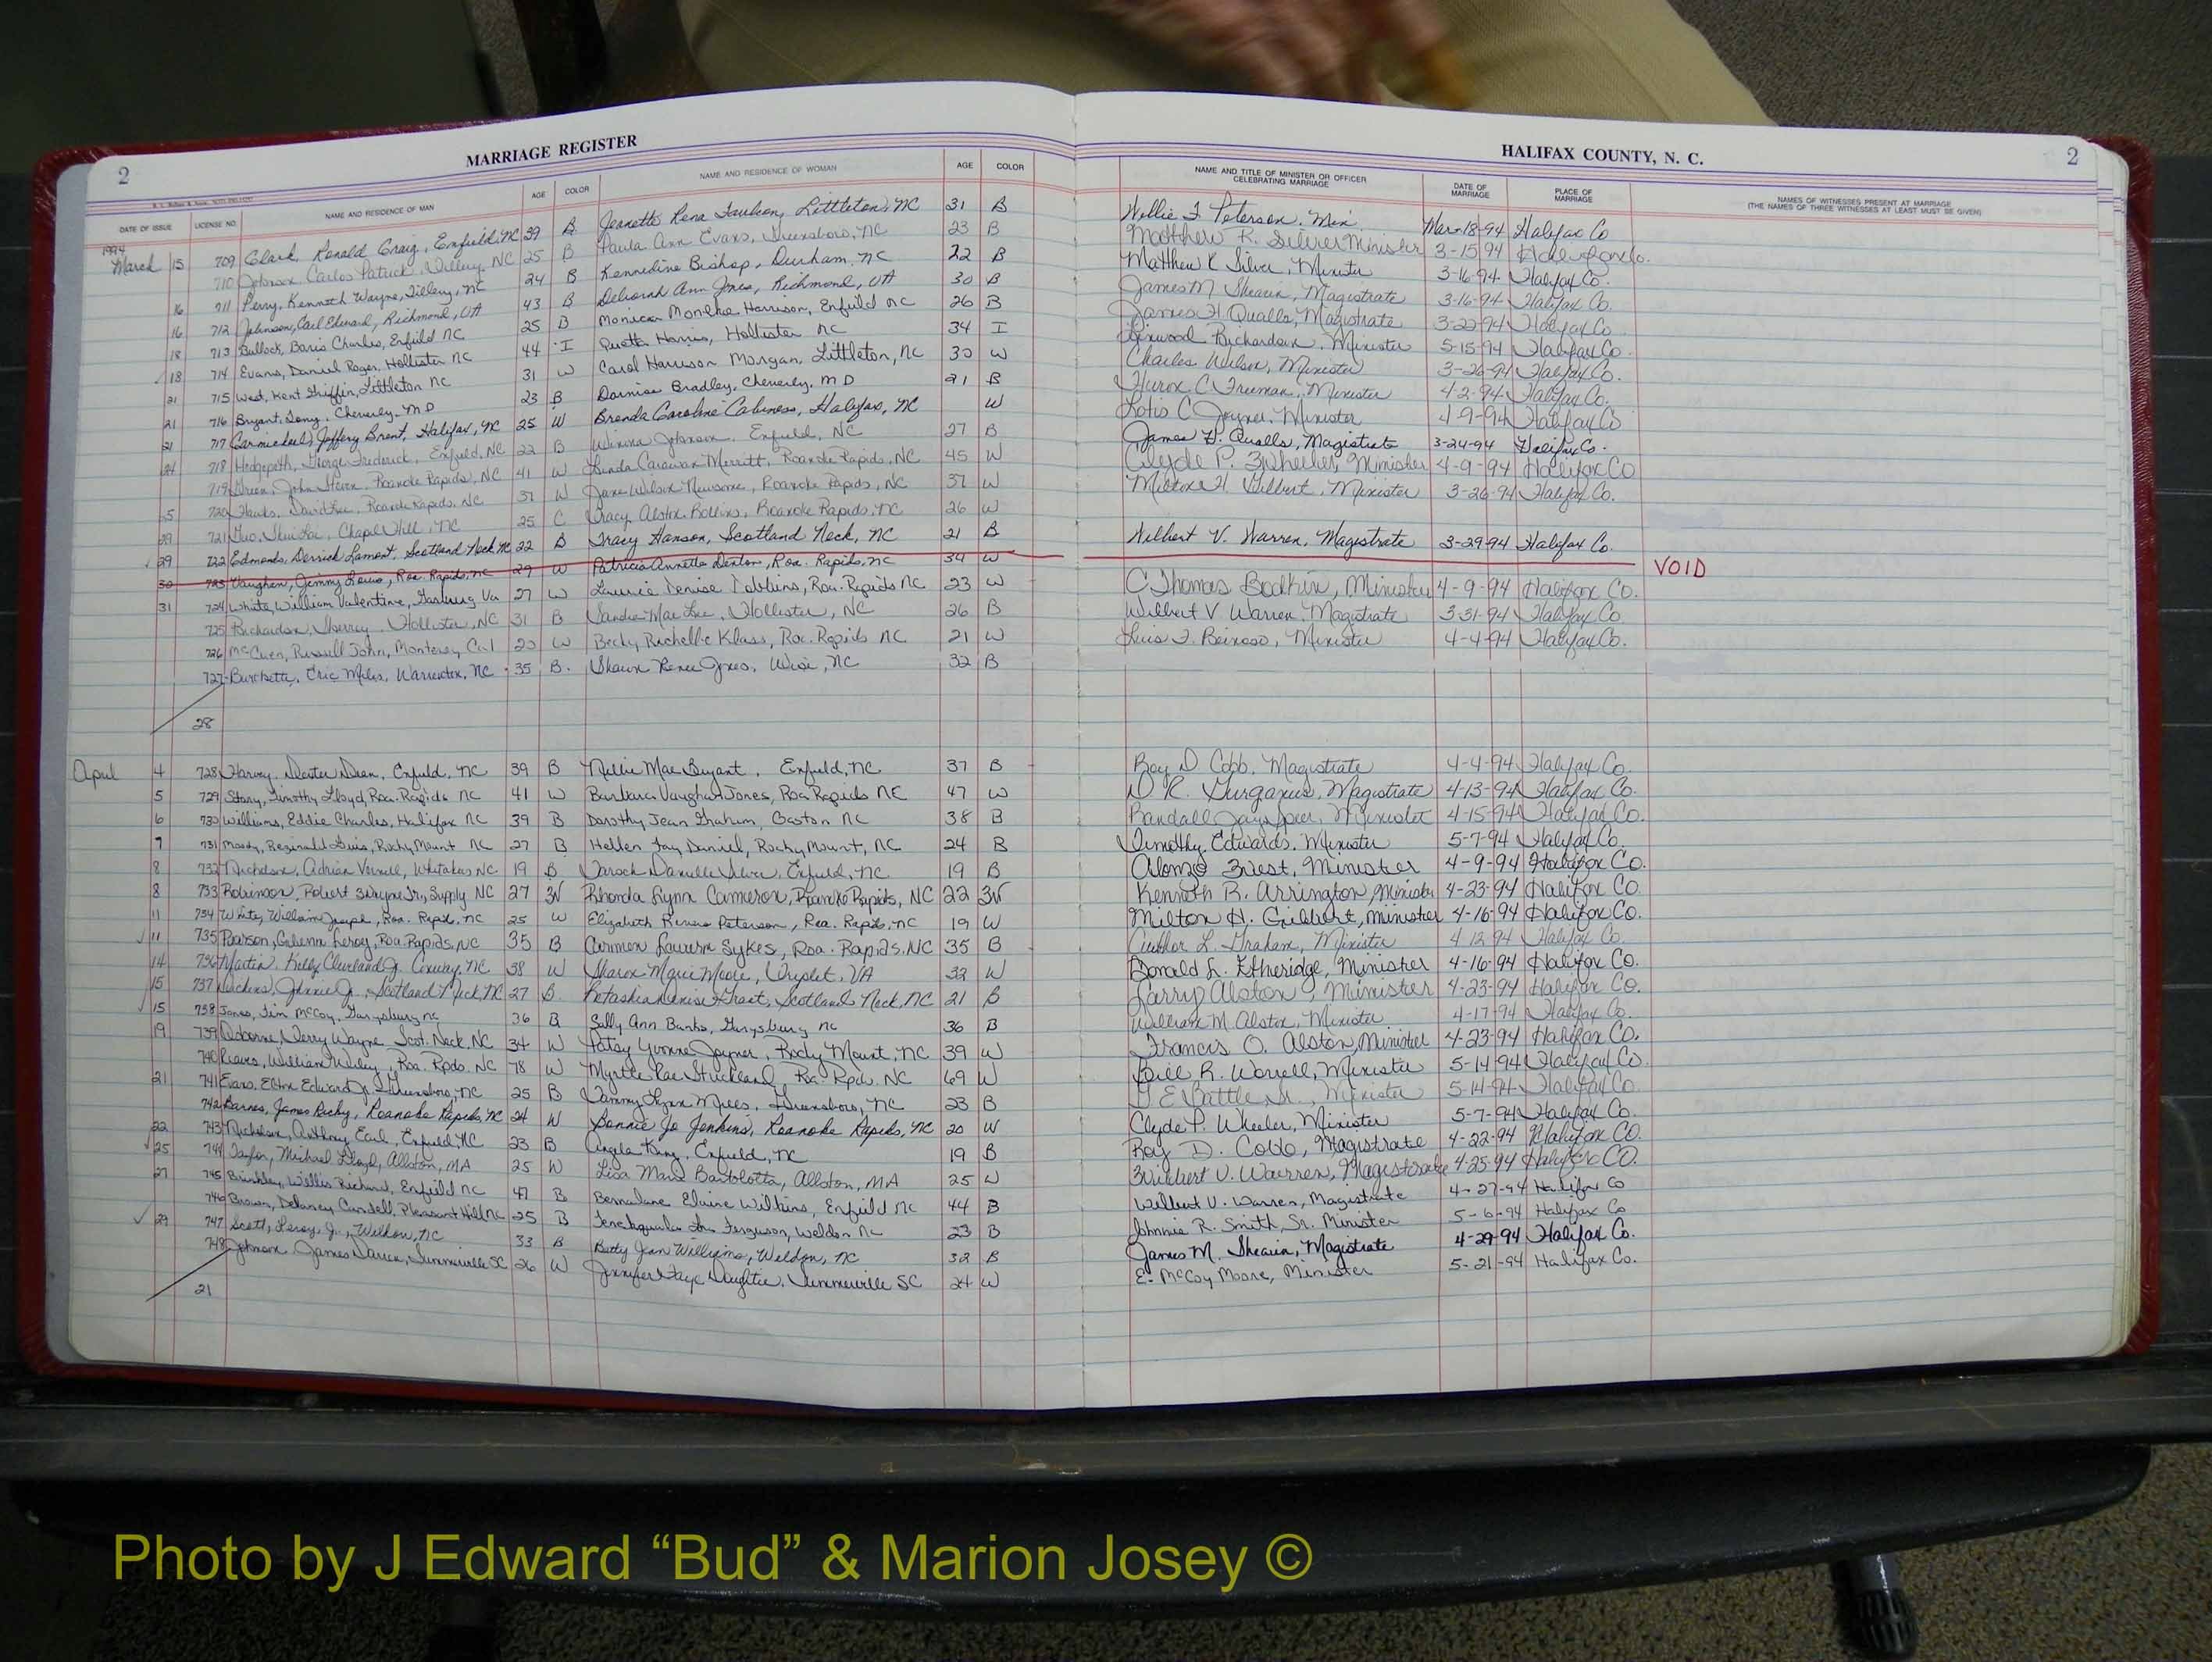 2 MARRIAGE REGISTER HALIFAX COUNTY, N. C. 2
DATE OF ISSUE LICENSE NO. NAME AND RESIDENCE OF MAN AGE COLOR NAME AND RESIDENCE OF WOMAN AGE COLOR NAME AND TITLE OF MINISTER OR OFFICER CELEBRATING MARRIAGE DATE OF MARRIAGE PLACE OF MARRIAGE NAMES OF WITNESSES PRESENT AT MARRIAGE (THE NAMES OF THREE WITNESSES AT LEAST MUST BE GIVEN)
1994
March 15 709 Clark, Ronald Craig, Enfield, NC 39 B Jeanette Rena Faulcon, Littleton, NC 31 B Willie F. Peterson, Min. Mar-18-94 Halifax Co
710 Johnson Carlos Patrick, Tillery, NC 25 B Paula Ann Evans, Greensboro, NC 23 B Matthew K. Silver Minister 3-15-94 Halifax Co.
16 711 Perry, Kenneth Wayne, Tillery, NC 24 B Kennedine Bishop, Durham, NC 22 B Matthew K Silver, Minister 3-16-94 Halifax Co.
16 712 Johnson, Carl Edward, Richmond, VA 43 B Deborah Ann Jones, Richmond, VA 30 B James M Shearin, Magistrate 3-16-94 Halifax Co.
18 713 Bullock, Boris Charles, Enfield NC 25 B Monica Harrison, Enfield NC 26 B James H. Qualls, Magistrate 3-20-94 Halifax Co
18 714 Evans, Daniel Roger, Hollister NC 44 I Quetta Harris, Hollister NC 34 I Linwood Richardson, Minister 5-15-94 Halifax Co.
21 715 West, Kent Griffin, Littleton NC 31 W Carol Harrison Morgan, Littleton, NC 30 W Charles Wilson, Minister 3-26-94 Halifax Co.
21 716 Bryant, Tony, Cheverly, MD 23 B Bradley, Cheverly, MD 21 B C. Freeman, Minister 4-2-94 Halifax Co.
21 717 Carmichael, Jeffery Brent, Halifax, NC 25 W Brenda Caroline Cabiness, Halifax, NC W Lotis C Joyner, Minister 4-9-94 Halifax Co
24 718 Hedgepeth, George Frederick, Enfield, NC 22 B Winona Johnson, Enfield, NC 27 B James H. Qualls, Magistrate 3-24-94 Halifax Co.
719 Green, John Steven, Roanoke Rapids, NC 41 W Linda Carawan Merritt, Roanoke Rapids, NC 45 W Clyde P. Wheeler, Minister 4-9-94 Halifax Co
25 720 Hawks, David Lee, Roanoke Rapids, NC 37 W Jane Wilson Newsome, Roanoke Rapids, NC 37 W Milton H. Gilbert, Minister 3-26-94 Halifax Co.
29 721 Guo, Chapel Hill, NC 25 C Tracy Alston Rollins, Roanoke Rapids, NC 26 W
29 722 Edmonds, Derrick Lamont, Scotland Neck NC 22 B Tracy Hanson, Scotland Neck, NC 21 B Wilbert V. Warren, Magistrate 3-29-94 Halifax Co.
30 723 Vaughan, Jimmy Lewis, Roa. Rapids, NC 29 W Patricia Annette Denton, Roa. Rapids, NC 34 W VOID
31 724 White, William Valentine, Gasburg Va 27 W Laurie Denise Robbins, Roa. Rapids NC 23 W C Thomas Bodkin, Minister 4-9-94 Halifax Co.
725 Richardson, Hollister, NC 31 B Sandra Mae Lee, Hollister, NC 26 B Wilbert V Warren, Magistrate 3-31-94 Halifax Co.
726 McCuen, Russell John, Monterey Cal 20 W Becky Richelle Klass, Roa. Rapids NC 21 W Luis F. Reinoso, Minister 4-4-94 Halifax Co.
727 Burchette, Eric Miles, Warrenton, NC 35 B. Shawn Renee Jones, Wise, NC 32 B
28
April 4 728 Harvey, Dexter Dean, Enfield, NC 39 B Nellie Mae Bryant, Enfield, NC 37 B Roy D Cobb, Magistrate 4-4-94 Halifax Co.
5 729 Story, Timothy Lloyd, Roa. Rapids NC 41 W Barbara Vaughan Jones, Roa Rapids NC 47 W D. R. Gurganus, Magistrate 4-13-94 Halifax Co.
6 730 Williams, Eddie Charles, Halifax NC 39 B Dorothy Jean Graham, Gaston NC 38 B Randall Minister 4-15-94 Halifax Co.
7 731 Moody, Reginald Luis, Rocky Mount NC 27 B Hellen Fay Daniel, Rocky Mount, NC 24 B Timothy Edwards, Minister 5-7-94 Halifax Co.
8 732 Nicholson, Adrian Vernell, Whitakers NC 19 B Danielle Silver, Enfield, NC 19 B Alonzo West, Minister 4-9-94 Halifax Co.
8 733 Robinson, Robert Wayne Jr., Supply NC 27 W Rhonda Lynn Cameron, Roanoke Rapids, NC 22 W Kenneth R. Arrington, Minister 4-23-94 Halifax Co
11 734 White, William Joseph, Roa. Rapids, NC 25 W Elizabeth Renee Peterson, Roa. Rapids, NC 19 W Milton H. Gilbert, Minister 4-16-94 Halifax Co.
11 735 Pearson, Glenn Leroy, Roa Rapids, NC 35 B Carmen Lauern Sykes, Roa. Rapids, NC 35 B Author L. Graham, Minister 4 12 94 Halifax Co.
14 736 Martin, Kelly Cleveland Jr. Conway, NC 38 W Sharon Marie Moore, Triplet, VA 32 W Donald L. Etheridge, Minister 4-16-94 Halifax Co.
15 737 Johnnie Jr., Scotland Neck, NC 27 B. Scotland Neck, NC 21 B Larry Alston, Minister 4-23-94 Halifax Co.
15 738 Jones, Tim McCoy, Garysburg NC 36 B Sally Ann Banks, Garysburg NC 36 B William M. Alston, Minister 4-17-94 Halifax Co.
19 739 Osborne, Terry Wayne Scot. Neck, NC 34 W Patsy Yvonne Joyner, Rocky Mount, NC 39 W Francis O. Alston, Minister 4-23-94 Halifax Co.
740 Reaves, William Wiley, Roa. Rpds. NC 78 W Myrtle Rae Strickland, Roa. Rpds. NC 69 W Bill R. Worrell, Minister 5-14-94 Halifax Co
21 741 Evans, Elton Edward Jr. Greensboro, NC 25 B Tammy Lynn Mills, Greensboro, NC 23 B G. E. Battle, Sr., Minister 5-14-94 Halifax Co.
742 Barnes, James Ricky, Roanoke Rapids, NC 24 W Bonnie Jo Jenkins, Roanoke Rapids, NC 20 W Clyde P. Wheeler, Minister 5-7-94 Halifax Co.
22 743 Nicholson, Anthony Earl, Enfield NC 23 B Angela King, Enfield, NC 19 B Roy D. Cobb, Magistrate 4-22-94 Halifax Co.
25 744 Taylor, Michael Lloyd, Allston, MA 25 W Lisa Marie Bartolotta, Allston, MA 25 W Wilbert V. Warren, Magistrate 4-25-94 Halifax Co.
27 745 Brinkley, Willis Richard, Enfield NC 47 B Bernadane Elaine Wilkins, Enfield NC 44 B Wilbert V. Warren, Magistrate 4-27-94 Halifax Co
746 Brown, Delaney Pleasant Hill NC 25 B Ferguson, Weldon NC 23 B Johnnie R. Smith, Sr. Minister 5-6-94 Halifax Co
29 747 Scott, Leroy Jr., Weldon, NC 33 B Betty Jean Williams, Weldon, NC 32 B James M. Shearin, Magistrate 4-29-94 Halifax Co.
748 Johnson James Darren, Summerville SC 26 W Jennifer Faye Daughtee, Summerville SC 24 W E. McCoy Moore, Minister 5-21-94 Halifax Co.
21
Photo by J Edward “Bud” & Marion Josey ©